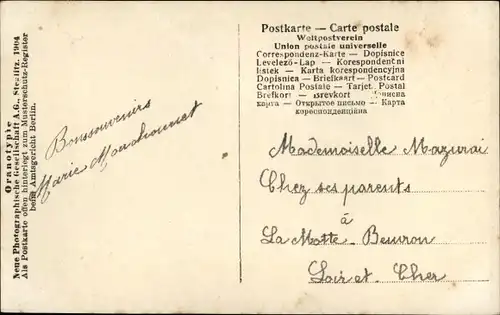 Oranotypie
Neue Photographische Gesellschaft A.G., Steglitz. 1904
Als Postkarte offen hinterlegt zum Musterschutz-Register
beim Amtsgericht Berlin.
Bonssouvenirs
Marie
Postkarte — Carte postale
Weltpostverein
Union postale universelle
Correspondenz-Karte — Dopisnice
Levelező-Lap — Korespondentni
listek — Karta korespondencyjna
Dopisnica — Briefkaart — Postcard
Cartolina Postale — Tarjet. Postal
Brefkort — Brevkort —
карта — Открытое письмо — Карта
кореспонденцийна
Mademoiselle Mazurai
Chez ses parents
à
La Motte-Beuvron
Loir et Cher